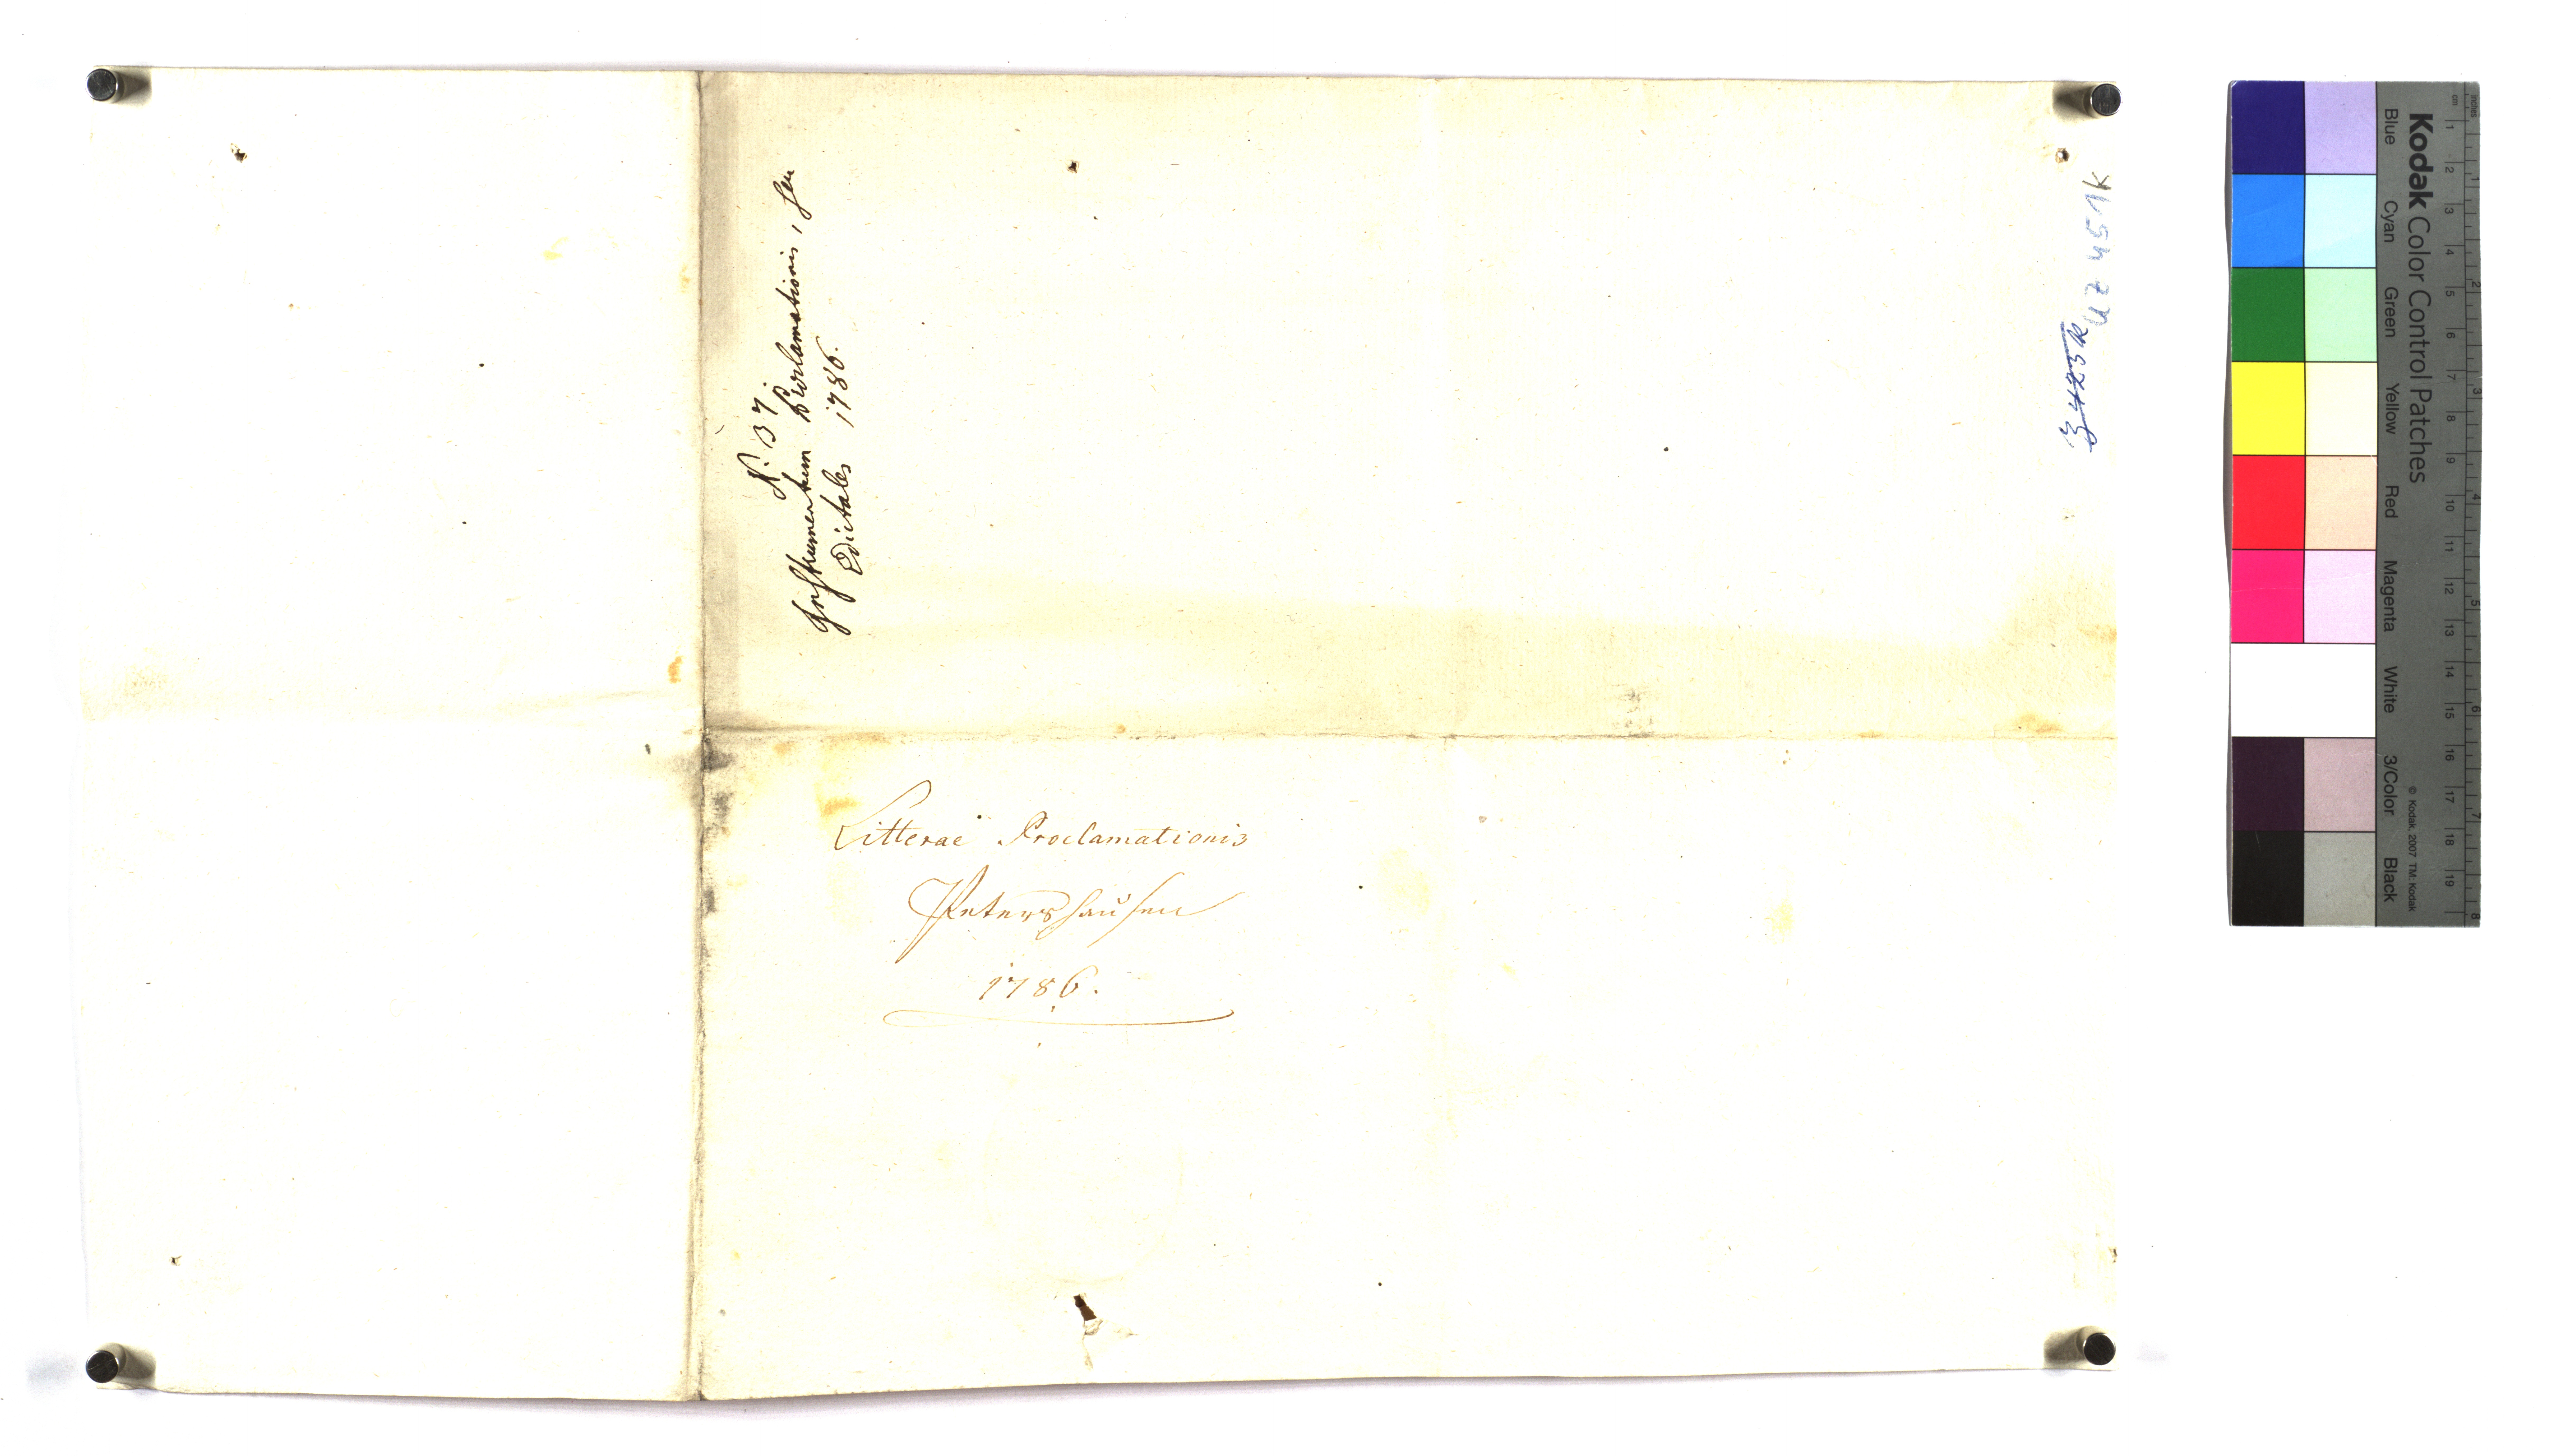 N. 37
Instrumentum Proclamationis, seu
Edictales 1786.
Litterae Proclamationis
Petershausen
1786.
UZ 451k
Kodak Color Control Patches
Blue Cyan Green Yellow Red Magenta White 3/Color Black
© Kodak, 2007 TM: Kodak
inches 1 2 3 4 5 6 7 8
cm 1 2 3 4 5 6 7 8 9 10 11 12 13 14 15 16 17 18 19